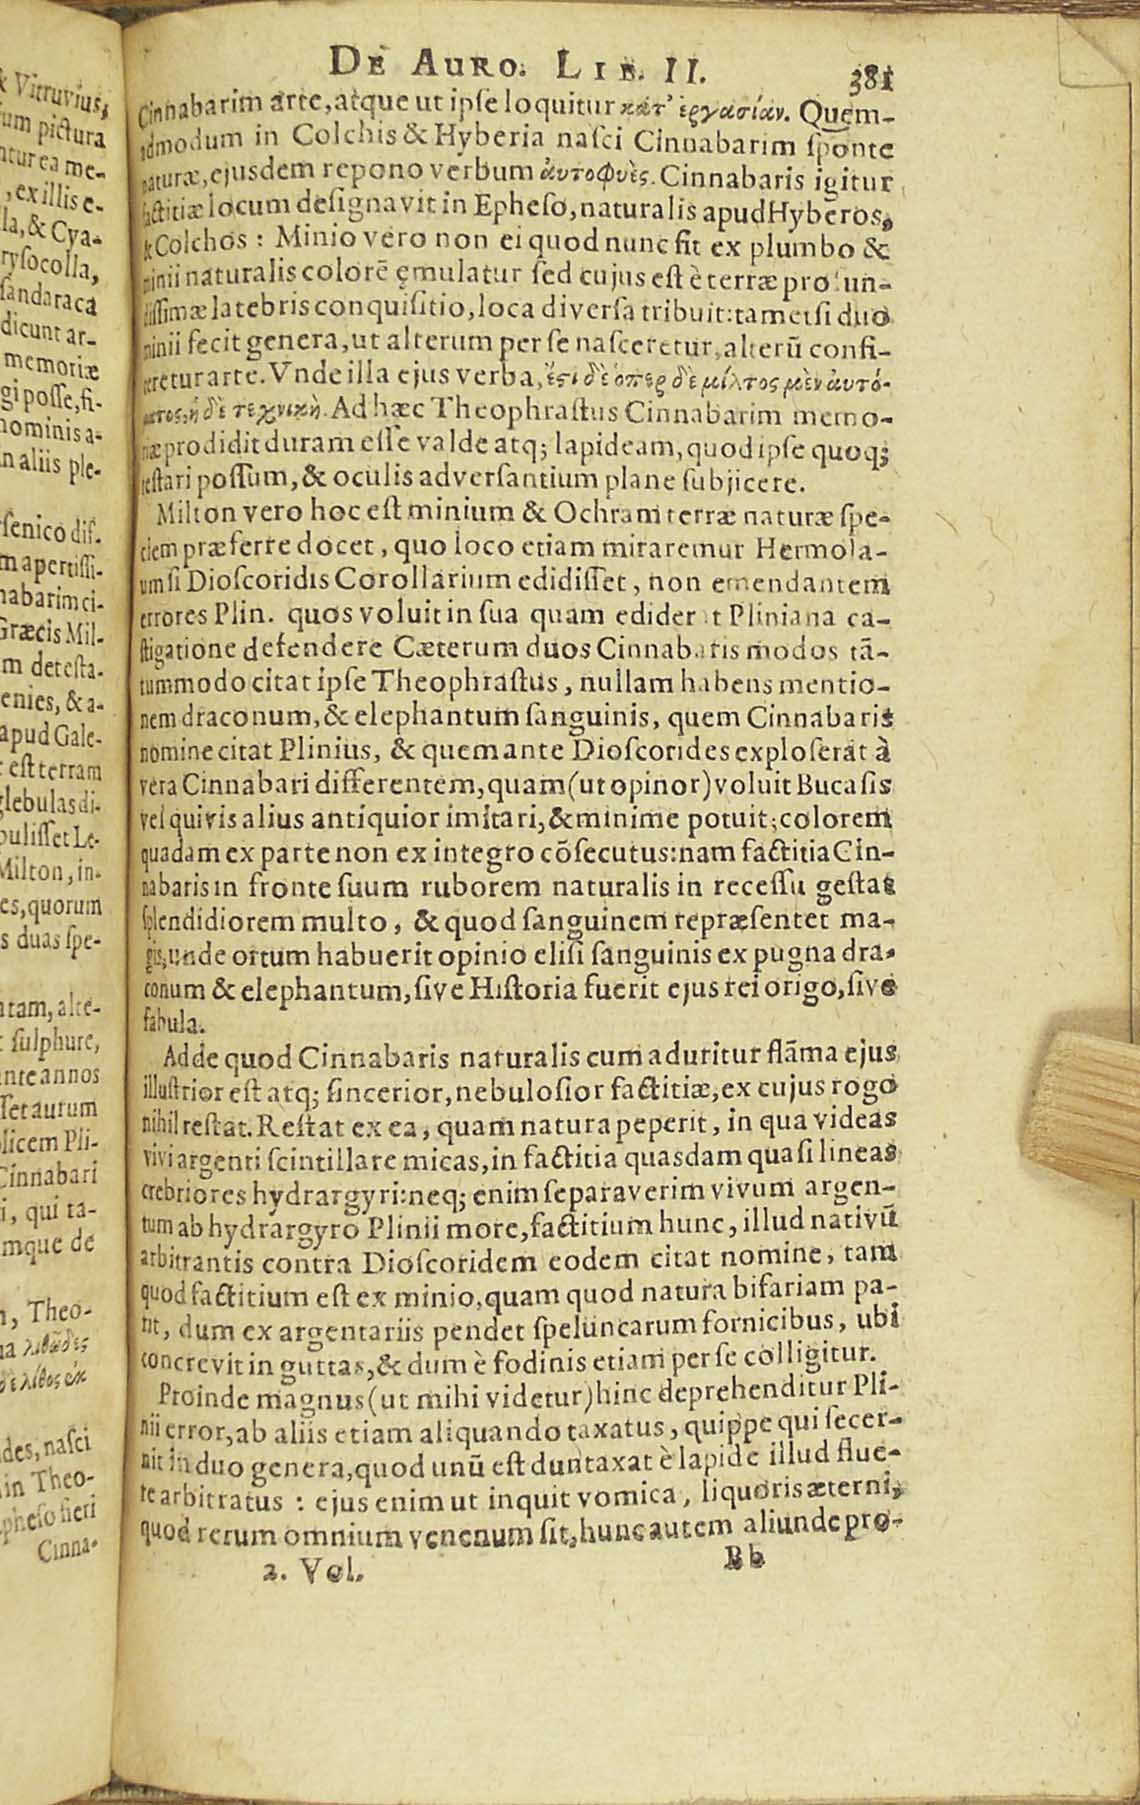 & Vitruvius,
um pictura
me-
, ex illis e-
la, & Cya-
rysocolla,
sandaraca
dicunt ar-
memoriæ
gi posse, fi-
nominis a-
n aliis ple-
senico dif-
m apertissi-
nabarim ci-
Græcis Mil-
m detesta-
enies, & a-
apud Gale-
est terram
glebulas di-
puliſſet Le-
Milton, in-
es, quorum
s duas spe-
atam, alte-
sulphure,
ante annos
set aurum
plicem Pli-
Cinnabari
i, qui ta-
mque de
, Theo-
λίθος
des, nasci
in Theo-
pheso fieri
Cinna-
DE AURO. LIB. II. 381
Cinnabarim arte, atque ut ipse loquitur κατ' ἐργασίαν. Quem-
admodum in Colchis & Hyberia nasci Cinnabarim sponte
naturæ, ejusdem repono verbum ἀυτοφυὲς. Cinnabaris igitur
factitiæ locum designavit in Epheso, naturalis apud Hyberos,
& Colchos : Minio vero non ei quod nunc fit ex plumbo &
minii naturalis colorē ęmulatur sed cujus est è terræ profun-
dissimæ latebris conquisitio, loca diversa tribuit: tametsi duo
minii fecit genera, ut alterum per se nasceretur, alterū confi-
ceretur arte. Vnde illa ejus verba, ἔςι δὲ ὁπερ δὲ μίλτος μὲν ἀυτό-
ματος, ἡ δὲ τεχνικὴ. Ad hæc Theophrastus Cinnabarim memo-
riæ prodidit duram esse valde atq; lapideam, quod ipse quoq;
testari possum, & oculis adversantium plane subjicere.
Milton vero hoc est minium & Ochram terræ naturæ spe-
ciem præferre docet, quo loco etiam miraremur Hermola-
um si Dioscoridis Corollarium edidisset, non emendantem
errores Plin. quos voluit in sua quam ediderat Pliniana ca-
stigatione defendere Cæterum duos Cinnabaris modos tā-
tummodo citat ipse Theophrastus, nullam habens mentio-
nem draconum, & elephantum sanguinis, quem Cinnabaris
nomine citat Plinius, & quem ante Dioscorides exploserat à
vera Cinnabari differentem, quam (ut opinor) voluit Bucasis
vel quivis alius antiquior imitari, & minime potuit; colorem
quadam ex parte non ex integro cōsecutus: nam factitia Cin-
nabaris in fronte suum ruborem naturalis in recessu gestat
splendidiorem multo, & quod sanguinem repræsentet ma-
gis, unde ortum habuerit opinio elisi sanguinis ex pugna dra-
conum & elephantum, sive Historia fuerit ejus rei origo, sive
fabula.
Adde quod Cinnabaris naturalis cum aduritur flāma ejus
illustrior est atq; sincerior, nebulosior factitiæ, ex cujus rogo
nihil restat. Restat ex ea, quam natura peperit, in qua videas
vivi argenti scintillare micas, in factitia quasdam quasi lineas
crebriores hydrargyri: neq; enim separaverim vivum argen-
tum ab hydrargyro Plinii more, factitium hunc, illud nativū
arbitrantis contra Dioscoridem eodem citat nomine, tam
quod factitium est ex minio, quam quod natura bifariam pa-
rit, dum ex argentariis pendet speluncarum fornicibus, ubi
concrevit in guttas, & dum è fodinis etiam per se colligitur.
Proinde magnus (ut mihi videtur) hinc deprehenditur Pli-
nii error, ab aliis etiam aliquando taxatus, quippe qui secer-
nit in duo genera, quod unū est duntaxat è lapide illud flue-
re arbitratus : ejus enim ut inquit vomica, liquoris æterni,
quod rerum omnium venenum sit, hunc autem aliunde pro-
2. Vol. Bb